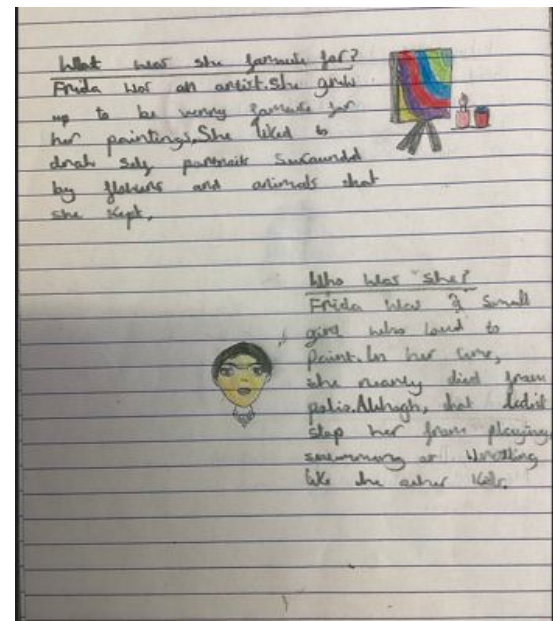 What was she famuse for?
Frida was an artist. She grew
up to be venry famuse for
her paintings. She liked to
drah self portraits suraundd
by flowers and animals that
she kept.
Who was she?
Frida was a small
girl who lovd to
paint. In her time,
she nearly died from
polio. Although, that dedist
stop her from playing
swimming or wrestling
like the other kids.